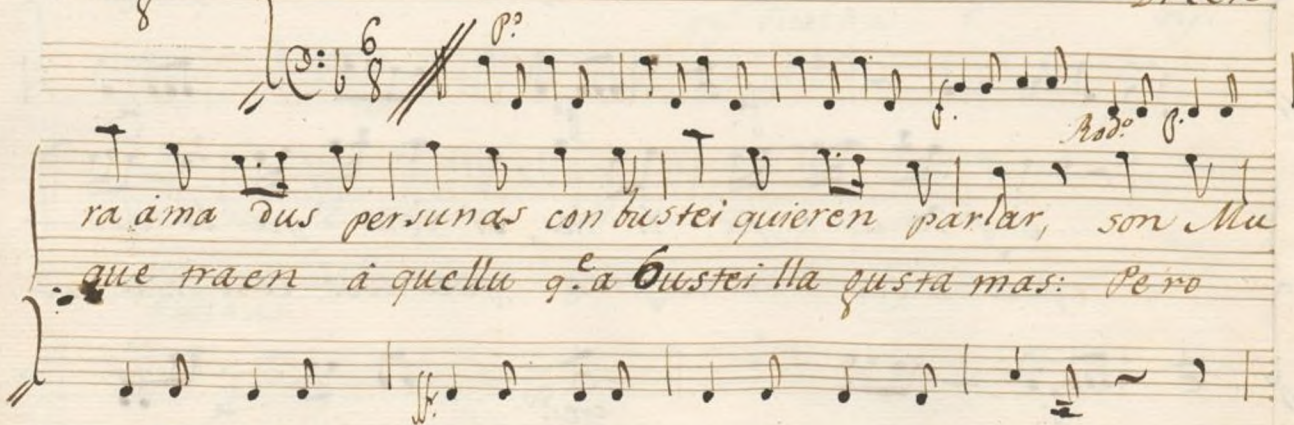 8
6
8
P.º
f.
Rod.º P.
ra àma dus persunas con bustei quieren parlar, son Mu
que traen à quellu q.e a bustei lla gusta mas: Pero
ff.